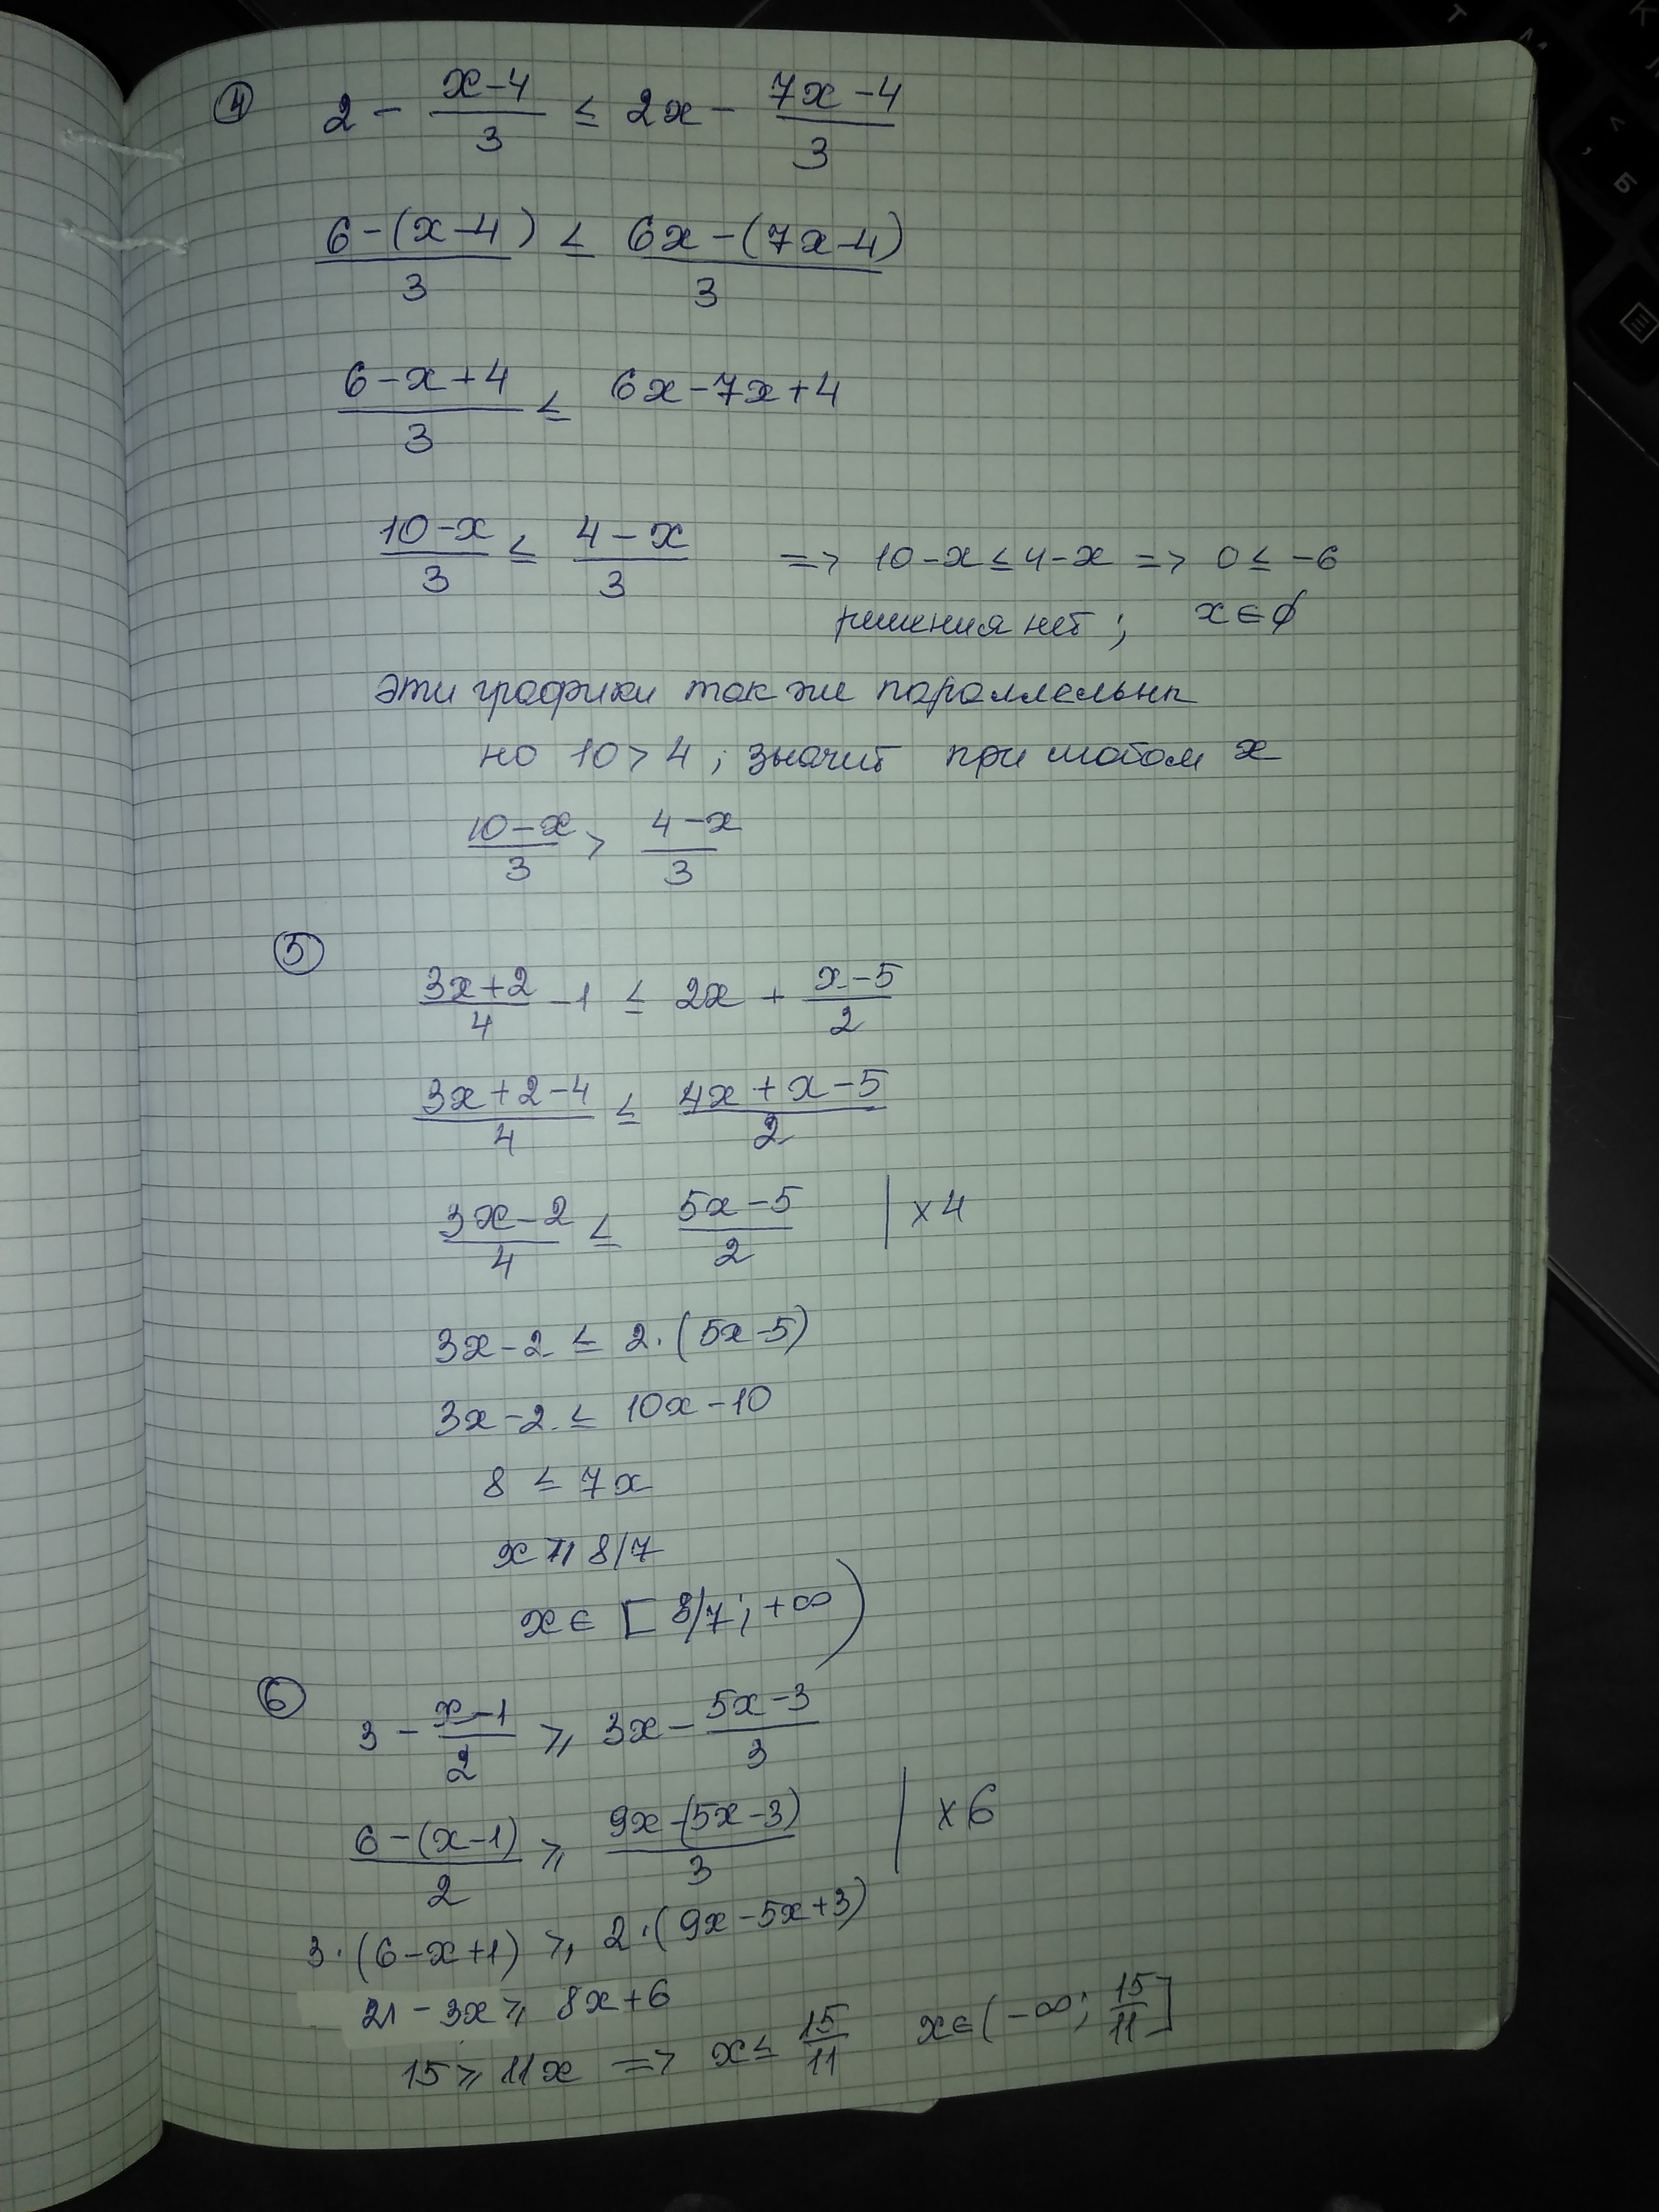 ④ 2 - (x-4)/3 ≤ 2x - (7x-4)/3
(6-(x-4))/3 ≤ (6x-(7x-4))/3
(6-x+4)/3 ≤ 6x-7x+4
(10-x)/3 ≤ (4-x)/3 => 10-x≤4-x => 0≤-6
решения нет; x∈∅
эти графики так же параллельны
но 10>4; значит при любом x
(10-x)/3 > (4-x)/3
⑤
(3x+2)/4 -1 ≤ 2x + (x-5)/2
(3x+2-4)/4 ≤ (4x+x-5)/2
(3x-2)/4 ≤ (5x-5)/2 | ×4
3x-2 ≤ 2·(5x-5)
3x-2 ≤ 10x-10
8 ≤ 7x
x ⩾ 8/7
x∈ [8/7; +∞)
⑥
3 - (x-1)/2 ⩾ 3x - (5x-3)/3
(6-(x-1))/2 ⩾ (9x-(5x-3))/3 | ×6
3·(6-x+1) ⩾ 2·(9x-5x+3)
21-3x ⩾ 8x+6
15 ⩾ 11x => x≤ 15/11 x∈(-∞; 15/11]
Т
М
<
,
Б